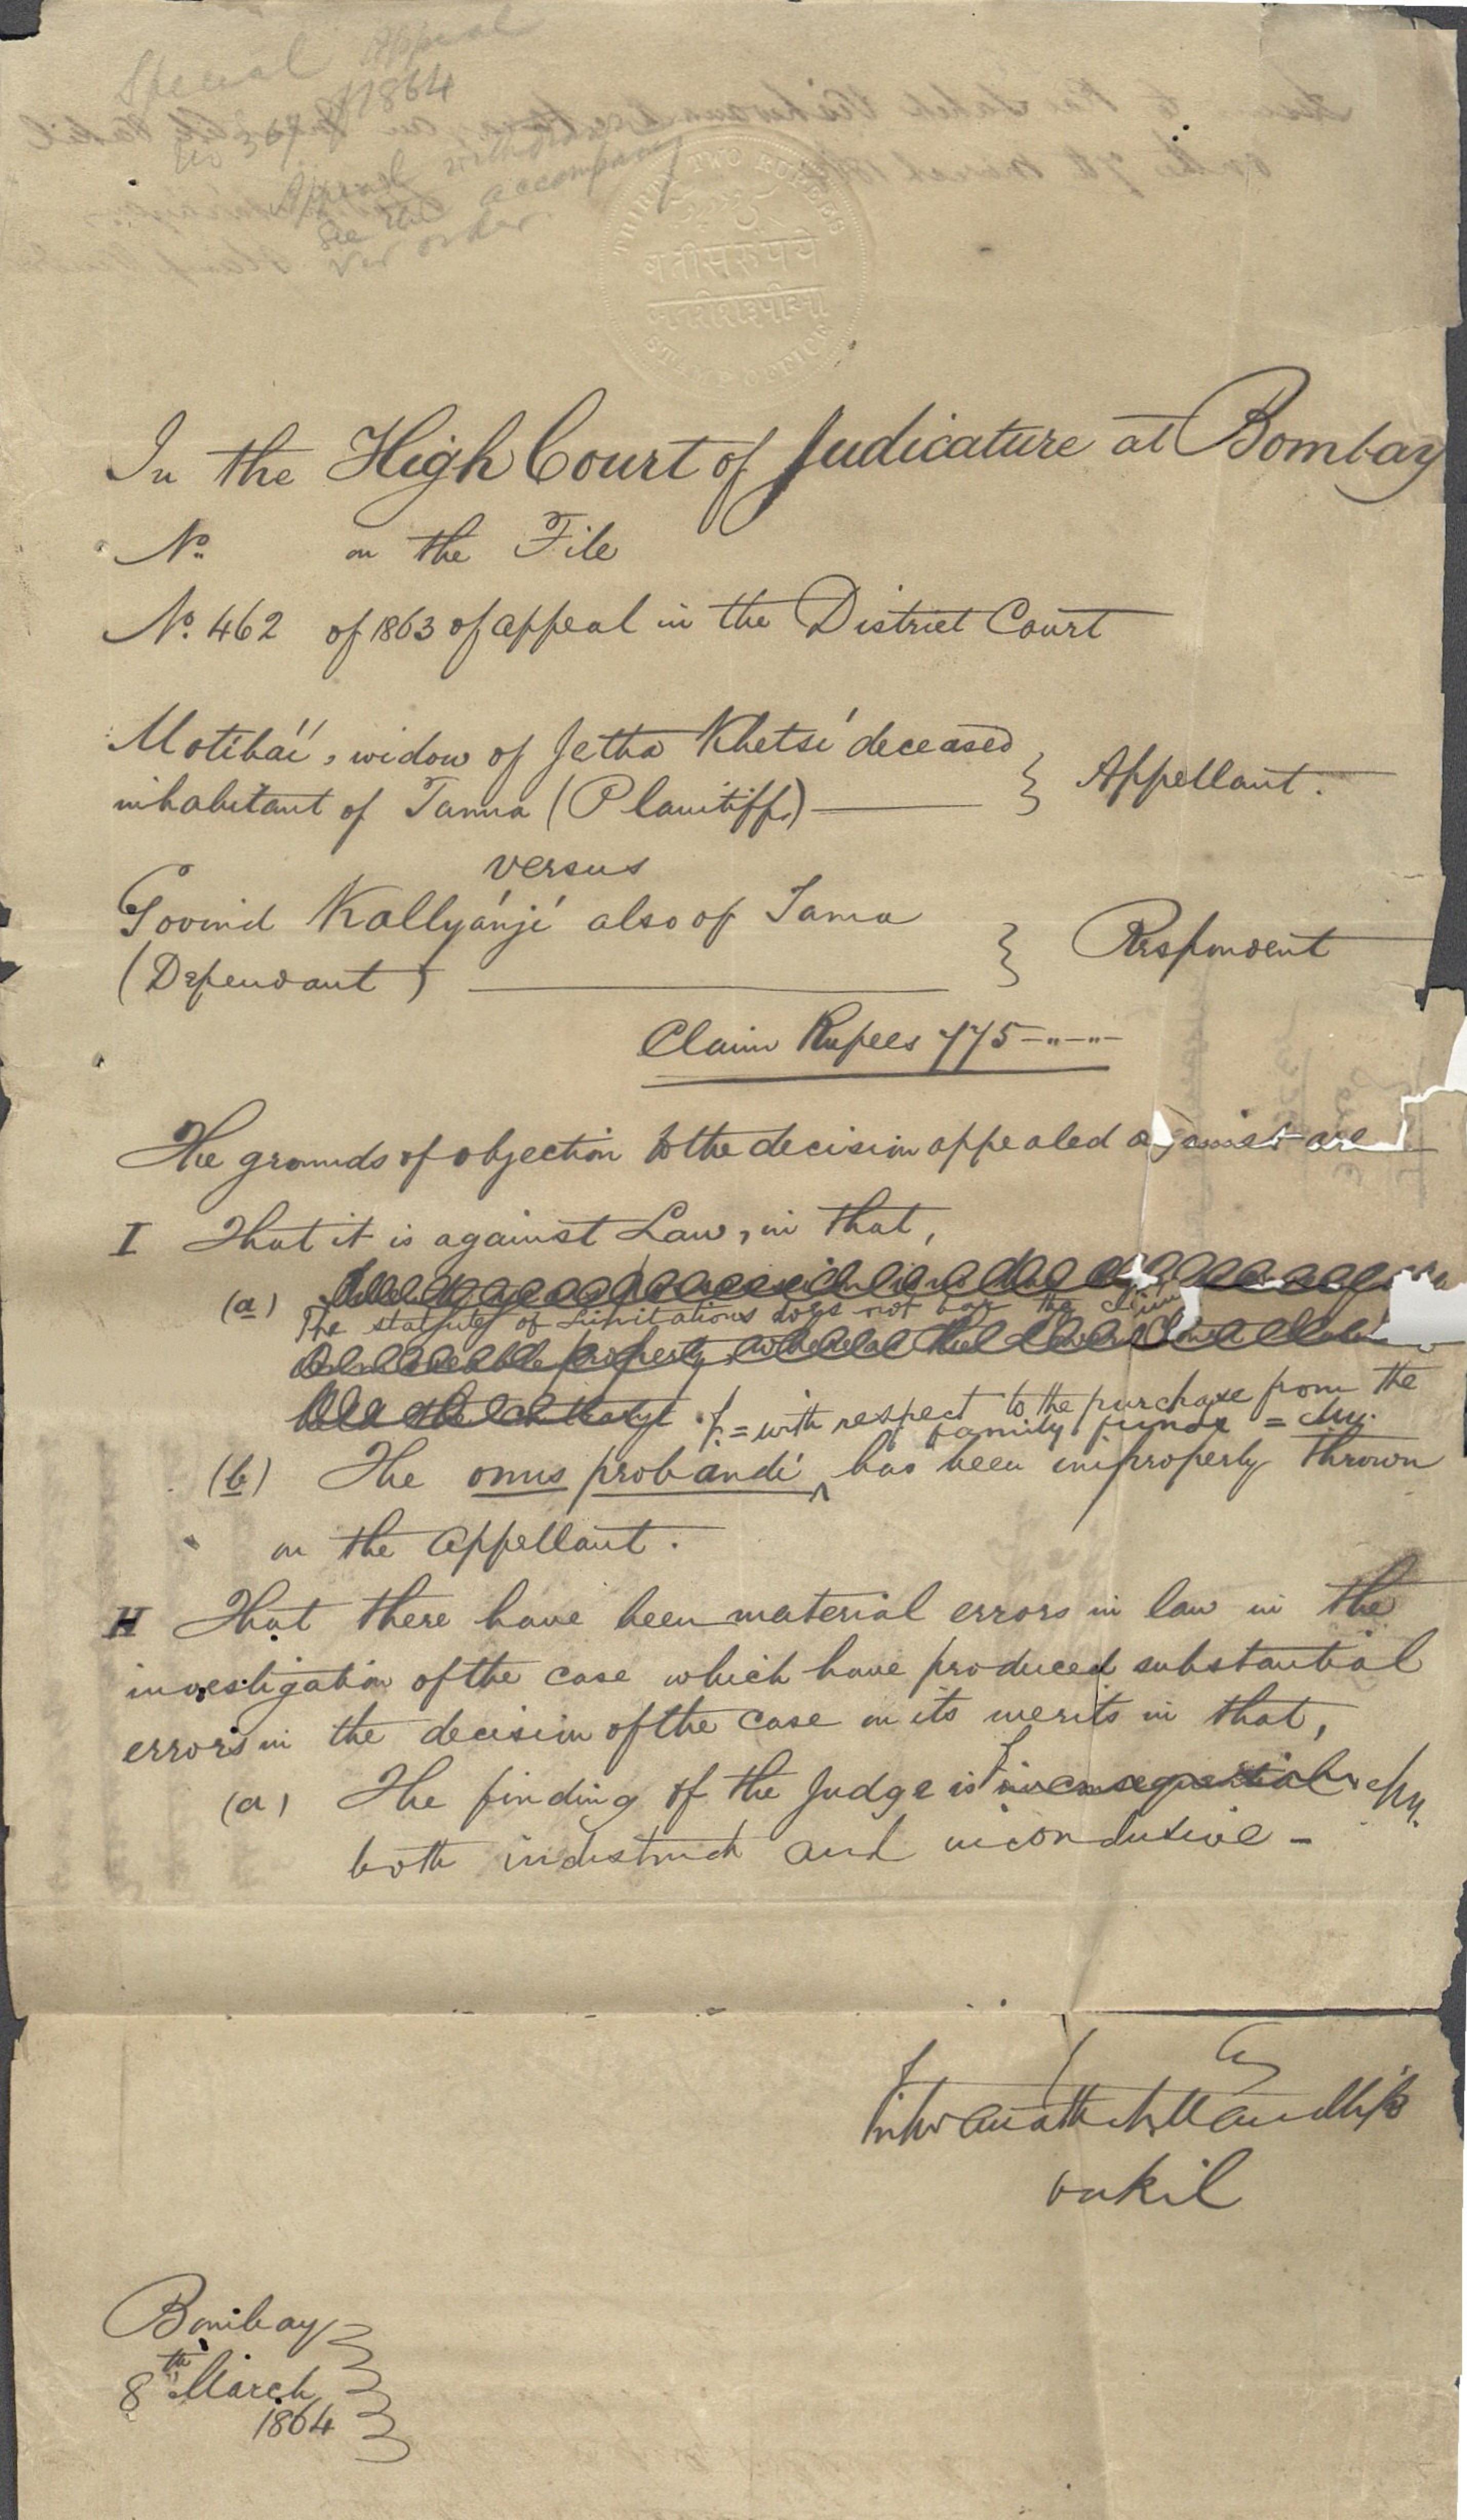 Special Appeal
1864
No 307
Appeal withdrawn
See the accompany
order
THIRTY TWO RUPEES
बत्तीस रुपये
STAMP OFFICE
In the High Court of Judicature at Bombay
No. on the File
No. 462 of 1863 of appeal in the District Court
Motibái, widow of Jetha Khetsí deceased
inhabitant of Tanna (Plaintiff) } Appellant.
versus
Govind Kallyánjí also of Tanna
(Dependant) } Respondent
Claim Rupees 775-"-"-
The grounds of objection to the decision appealed against are
I That it is against Law, in that,
(a)
The statute of Limitations does not bar the claim
= with respect to the purchase from the
family funds =
(b) The onus probandi ^ has been improperly thrown
on the appellant.
II That there have been material errors in law in the
investigation of the case which have produced substantial
errors in the decision of the case on its merits in that,
(a) The finding of the Judge is inconsequential
both indistinct and inconclusive -
Vishvanath N. Mandlik
vakil
Bombay
8th March
1864